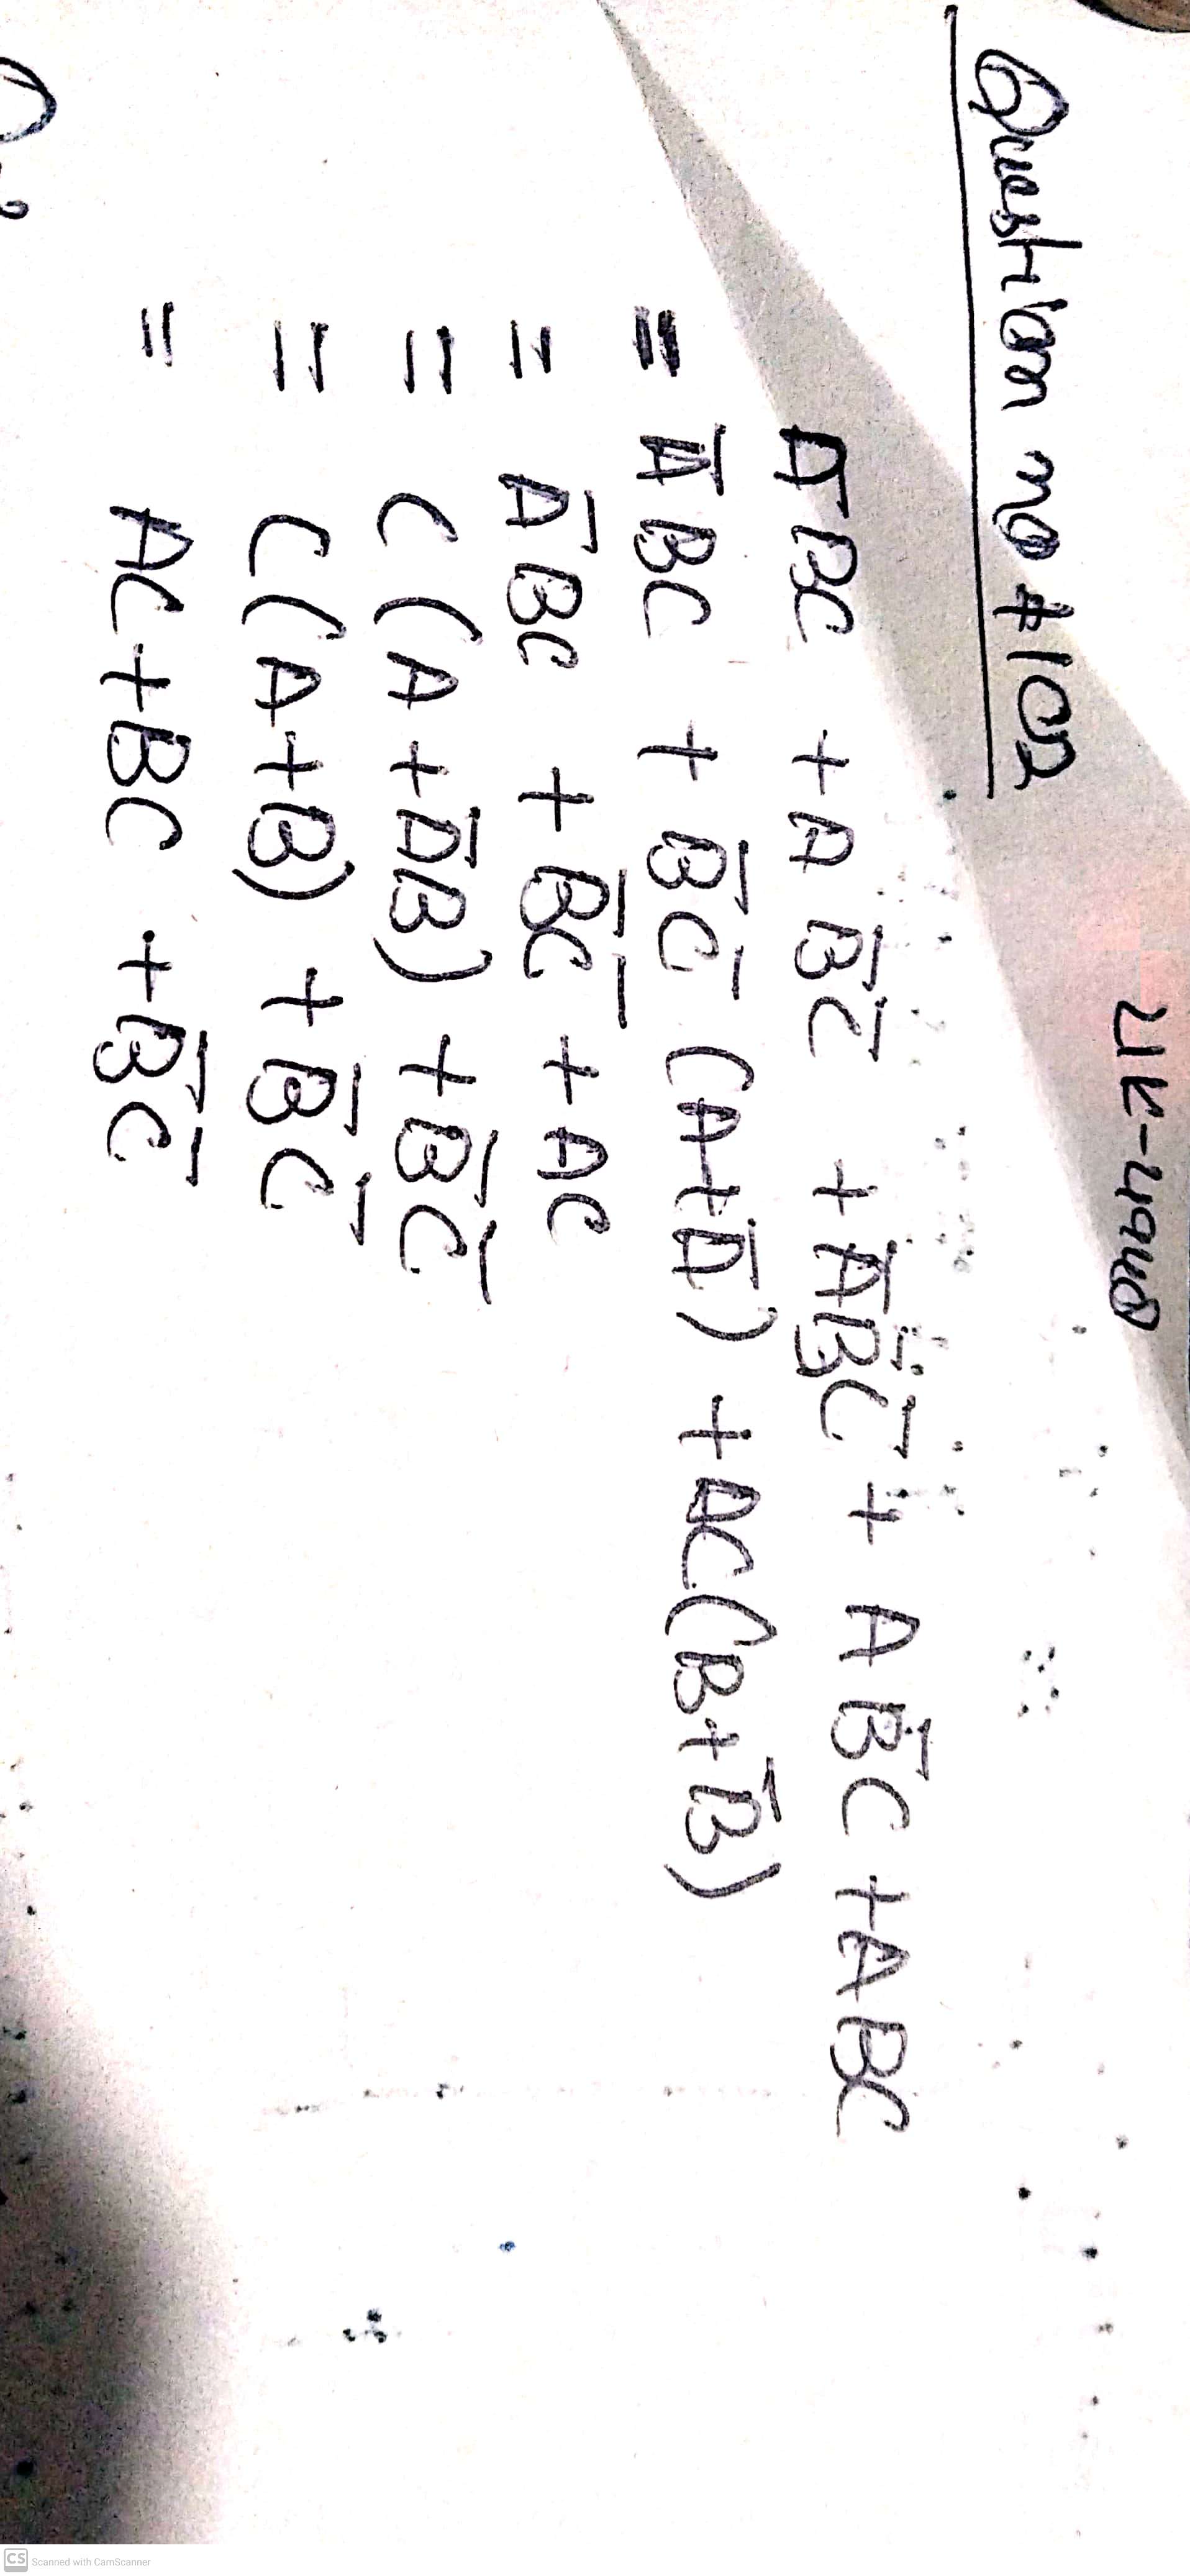 UK-4940
Question no #102
A̅BC + A B̅C̅ + A̅B̅C̅ + A B̅C + ABC
= A̅BC + B̅C̅ (A+A̅) + AC(B+B̅)
= A̅BC + B̅C̅ + AC
= C(A + A̅B) + B̅C̅
= C(A+B) + B̅C̅
= AC + BC + B̅C̅
CS Scanned with CamScanner